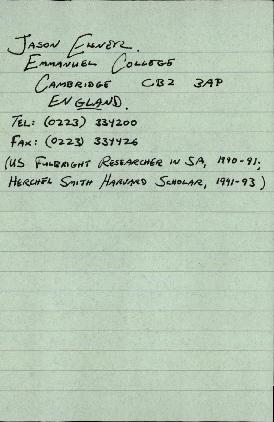 JASON
EMMANUEL COLLEGE
CAMBRIDGE CB2 3AP
ENGLAND.
TEL: (0223) 334200
FAX: (0223) 334426
(US FULBRIGHT RESEARCHER IN SA, 1990-91;
HERCHEL SMITH HARVARD SCHOLAR, 1991-93)